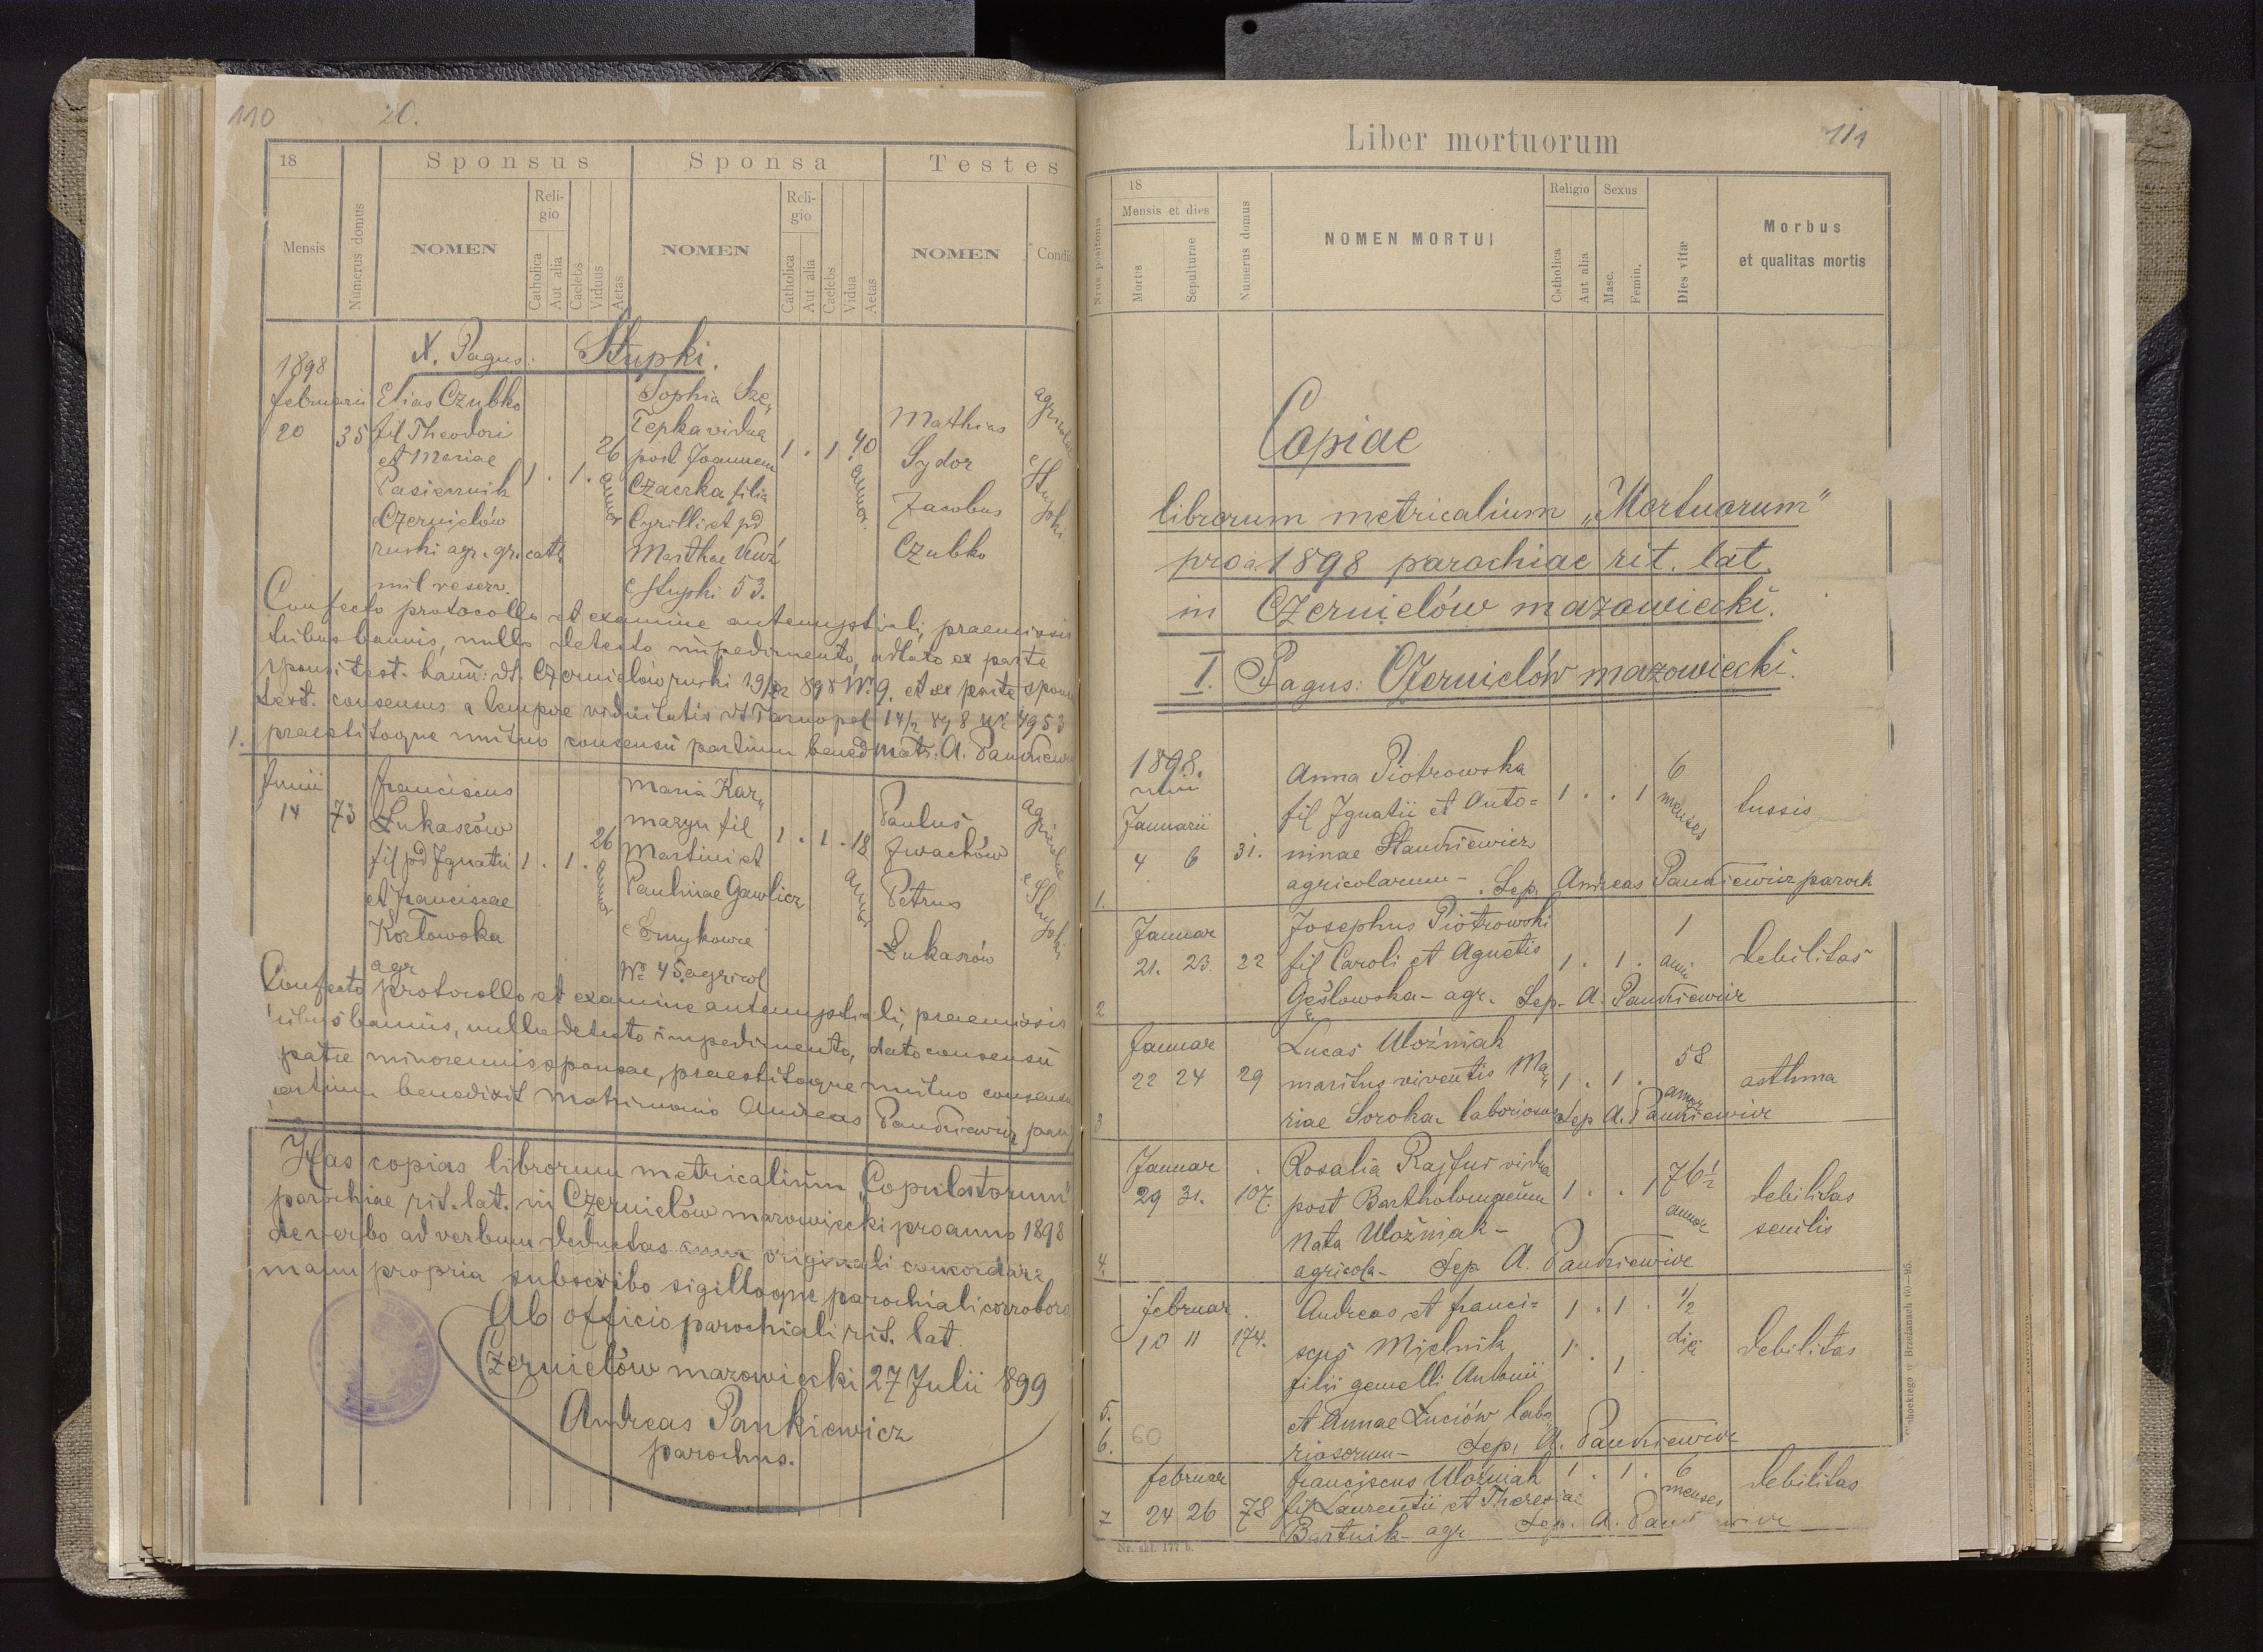 110
20.
18
Sponsus
Sponsa
Testes
Mensis
Numerus domus
NOMEN
Reli-
gio
Catholica
Aut alia
Caelebs
Viduus
Aetas
NOMEN
Reli-
gio
Catholica
Aut alia
Caelebs
Vidua
Aetas
NOMEN
1898
X. Pagus: Stupki.
Februarii
20
35
Elias Czubko
fil Theodori
et Mariae
Pasiecznik
e Czernielów
ruski agr. gr. cath
mil reserv.
1 . 1 .
26
annor
Sophia Sze„
Tepka vidua
post Joannem
Czaczka filia
Cyrilli et pd
Marthae
e Stupki 53.
1 . 1 .
40
annor.
Mathias
Sydor
Jacobus
Czubko
agricolae
e Stupki
Confecto protocollo et examine antenuptiali, praemissis
tribus bannis, nullo detecto impedimento, adlato ex parte
sponsi test. bann: dt. Czernielów ruski 19/2 898 Nr. 9. et ex parte sponsae
test. consensus a tempore viduitatis dt Tarnopol 14/2 898 Nr 4953
1. praestitoque mutuo consensu partium bened matr: A. Pankiewicz
Junii
14
73
Franciscus
Łukaszów
fil pd Ignatii
et Franciscae
Kozłowska
agr
1 . 1 .
26
annor
Maria Kar„
mazyn fil
Martini et
Paulinae Gawlicz
e Smykowce
Nr 45 agricol
1 . 1 . 18
annor
Paulus
Iwachów
Petrus
Łukaszów
agricolae
e Stupki
Confecto protocollo et examine antenuptiali, praemissis
tribus bannis, nullo detecto impedimento, dato consensu
patre minorennis sponsae, praestitoque mutuo consensu
partium benedixit matrimonio Andreas Pankiewicz par
Has copias librorum metricalium „Copulatorum"
parochiae rit. lat. in Czernielów mazowiecki pro anno 1898
de verbo ad verbum deductas cum originali concordare
manu propria subscribo sigilloque parochiali corroboro
Ab officio parochiali rit. lat.
Czernielów mazowiecki 27 Julii 899
Andreas Pankiewicz
parochus.
Liber mortuorum
111
Nrus positonis
18
Mensis et dies
Mortis
Sepulturae
Numerus domus
NOMEN MORTUI
Religio
Catholica
Aut alia
Sexus
Masc.
Femin.
Dies vitæ
Morbus
et qualitas mortis
Copiae
librorum metricalium „Mortuorum"
pro a 1898 parochiae rit. lat.
in Czernielów mazowiecki.
I. Pagus: Czernielów mazowiecki.
1898.
Januarii
4 6 31.
Anna Piotrowska
fil Ignatii et Anto=
ninae Stankiewicz
agricolarum - Sep. Andreas Pankiewicz paroch
1 . . 1
6
menses
tussis
1.
Januar
21. 23. 22
Josephus Piotrowski
fil Caroli et Agnetis
Gęsłowska - agr. Sep. A. Pankiewicz
1 . 1 .
1
anni
debilitas
2
Januar
22 24 29
Lucas Woźniak
maritus viventis Ma„
riae Soroka laboriosus Sep A. Pankiewicz
1 . 1 .
58
annor
asthma
3
Januar
29 31. 107.
Rosalia Rajfur vidua
post Bartholomaeum
nata Woźniak -
agricola - Sep A. Pankiewicz
1 . . 1
76 1/2
annor
debilitas
senilis
4.
Februar
10 11 174.
Andreas et Franci=
scus Mielnik
filii gemelli Antonii
et Annae Łuciów labo„
riosorum - Sep. A. Pankiewicz
1 . 1 .
1 . 1 .
1/2
diei
debilitas
5.
6. 60
Februar
24 26 78
Franciscus Woźniak
fil Laurentii et Theresiae
Bartnik - agr Sep. A. Pankiewicz
1 . 1 .
6
menses
debilitas
7
Nr. skł. 177 b.